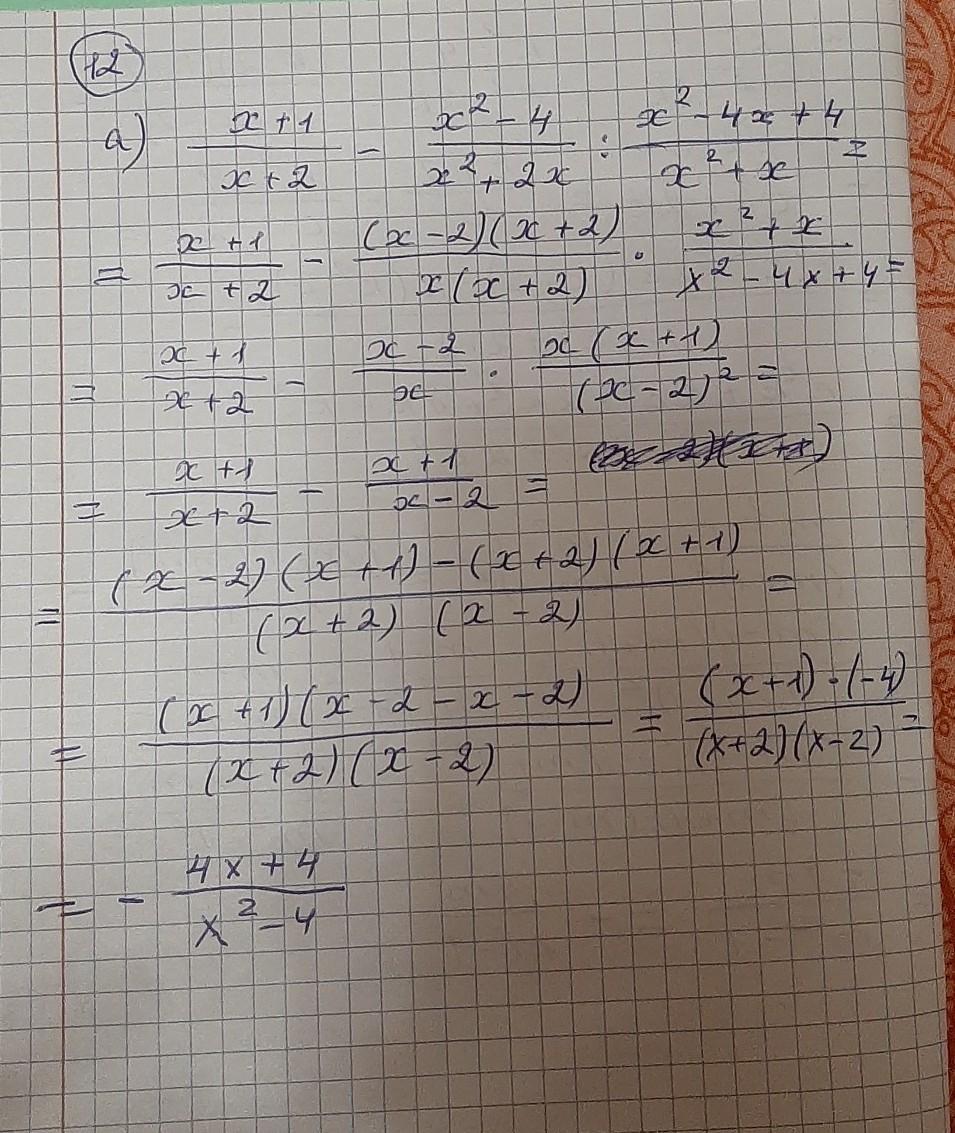 12
а) (x + 1)/(x + 2) - (x² - 4)/(x² + 2x) : (x² - 4x + 4)/(x² + x) =
= (x + 1)/(x + 2) - ((x - 2)(x + 2))/(x(x + 2)) · (x² + x)/(x² - 4x + 4) =
= (x + 1)/(x + 2) - (x - 2)/x · (x(x + 1))/((x - 2)²) =
= (x + 1)/(x + 2) - (x + 1)/(x - 2) =
= ((x - 2)(x + 1) - (x + 2)(x + 1))/((x + 2)(x - 2)) =
= ((x + 1)(x - 2 - x - 2))/((x + 2)(x - 2)) = ((x + 1) · (-4))/((x + 2)(x - 2)) =
= - (4x + 4)/(x² - 4)